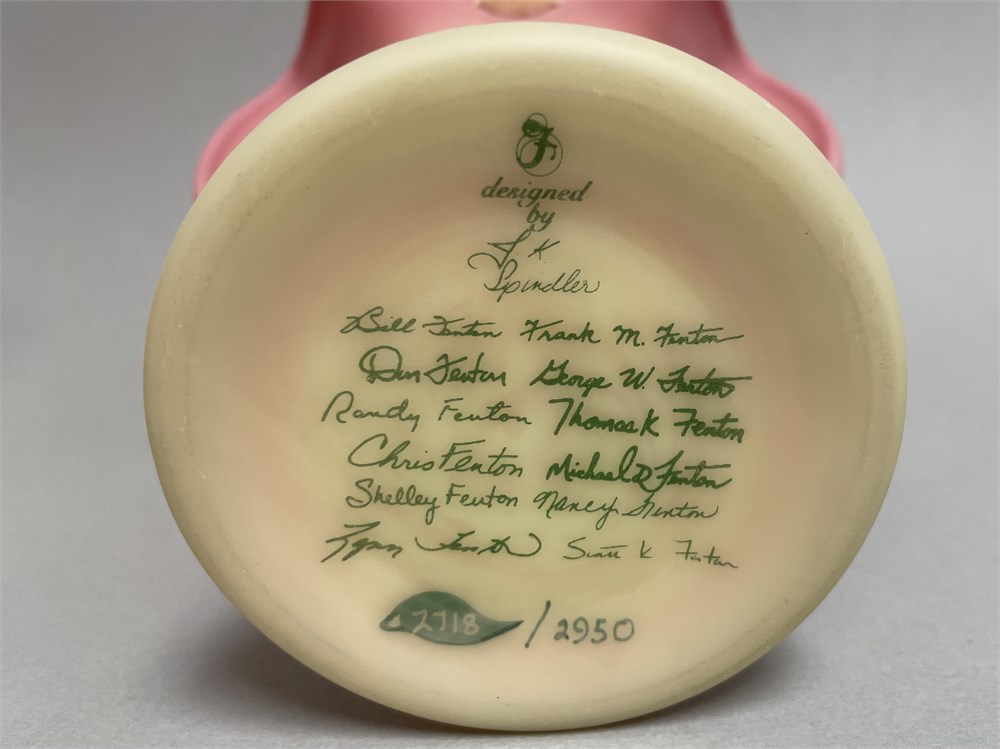 F
designed
by
J K
Spindler
Bill Fenton Frank M. Fenton
Don Fenton George W. Fenton
Randy Fenton Thomas K Fenton
Chris Fenton Michael D Fenton
Shelley Fenton Nancy Fenton
Lynn Fenton Scott K Fenton
2718 / 2950